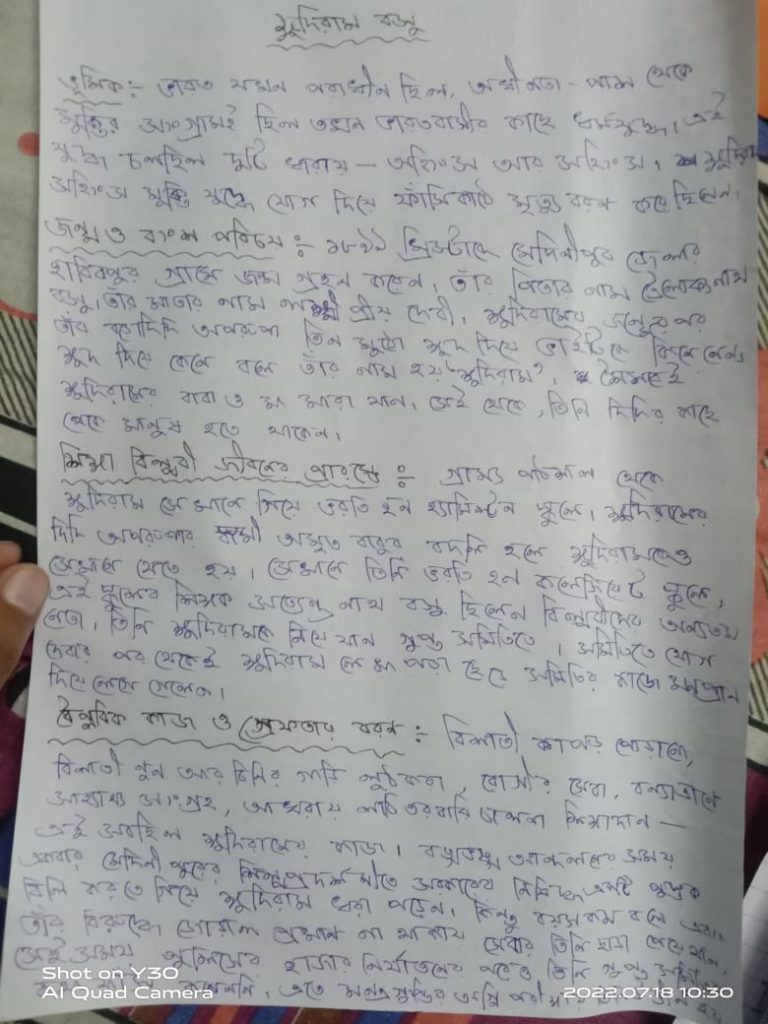 ক্ষুদিরাম বসু
ভূমিকা :- ভারত যখন পরাধীন ছিল, অধীনতা - পাশ থেকে
মুক্তির সংগ্রামই ছিল তখন ভারতবাসীর কাছে ধর্মযুদ্ধ। এই
যুদ্ধ চলছিল দুটি ধারায় — অহিংস আর সহিংস। ক্ষুদিরাম
সহিংস মুক্তি যুদ্ধে যোগ দিয়ে ফাঁসিকাঠে মৃত্যু বরণ করেছিলেন।
জন্ম ও বংশ পরিচয় :- ১৮৮৯ খ্রিস্টাব্দে মেদিনীপুর জেলার
হাবিবপুর গ্রামে জন্ম গ্রহন করেন। তাঁর পিতার নাম ত্রৈলোক্যনাথ
বসু, তাঁর মাতার নাম লক্ষ্মী প্রীয় দেবী। ক্ষুদিরামের জন্মের পর
তাঁর বড়োদিদি অপরূপা তিন মুঠো ক্ষুদ দিয়ে ভাইটিকে কিনে নেন।
ক্ষুদ দিয়ে কেনা বলে তাঁর নাম হয় 'ক্ষুদিরাম', শৈশবেই
ক্ষুদিরামের বাবা ও মা মারা যান। সেই থেকে, তিনি দিদির কাছে
থেকে মানুষ হতে থাকেন।
শিক্ষা বিপ্লবী জীবনের প্রারম্ভে :- গ্রাম্য পাঠশালা থেকে
ক্ষুদিরাম সেখানে গিয়ে ভরতি হন হ্যামিল্টন স্কুলে। ক্ষুদিরামের
দিদি অপরূপার স্বামী অমৃত বাবুর বদলি হলে ক্ষুদিরামকেও
সেখানে যেতে হয়। সেখানে তিনি ভরতি হন কলেজিয়েট স্কুলে,
এই স্কুলের শিক্ষক সত্যেন্দ্র নাথ বসু ছিলেন বিপ্লবীদের অন্যতম
নেতা, তিনি ক্ষুদিরামকে নিয়ে যান গুপ্ত সমিতিতে। সমিতিতে যোগ
দেবার পর থেকেই ক্ষুদিরাম লেখা পড়া ছেড়ে সমিতির কাজে মনপ্রান
দিয়ে লেগে গেলেন।
বৈপ্লবিক কাজ ও গ্রেফতার বরন :- বিলাতী কাপড় পোড়ানো,
বিলাতী নুন আর চিনির গাড়ি লুঠ করা, রোগীর সেবা, বন্যাত্রানে
সাহায্য সংগ্রহ, আখরায় লাঠি তরবারি চালনা শিক্ষাদান —
এই সবছিল ক্ষুদিরামের কাজ। বঙ্গভঙ্গ আন্দোলনের সময়
আবার মেদিনী পুরের শিল্পপ্রদর্শনীতে সরকারের নিষিদ্ধ একটি পুস্তক
বিলি করতে গিয়ে ক্ষুদিরাম ধরা পড়েন। কিন্তু বয়স কম বলে এবং
তাঁর বিরুদ্ধে জোরাল প্রমান না থাকায় সেবার তিনি ছাড়া পেয়ে যান,
সেই সময় পুলিসের হাজার নির্যাতনের পরেও তিনি গুপ্ত
করেননি, এতে মন্ত্রগুপ্তির অগ্নি
Shot on Y30
AI Quad Camera
2022.07.18 10:30